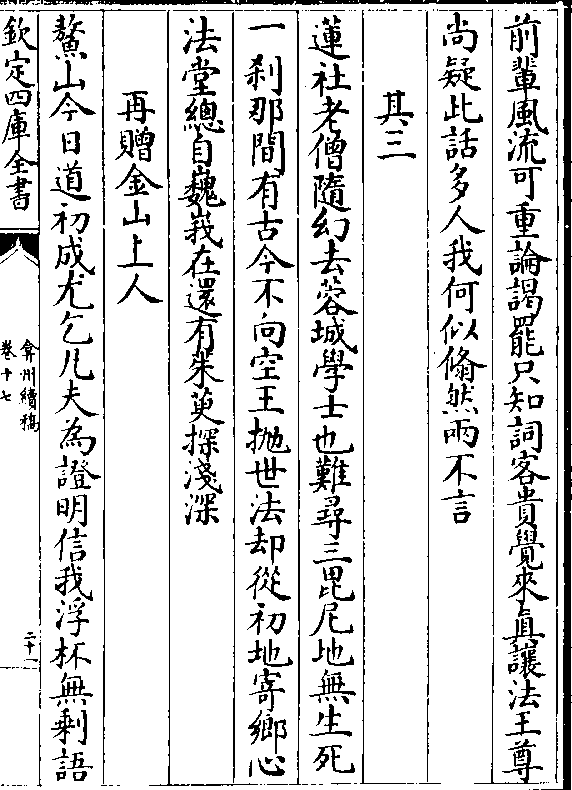 前輩風流可重論謁罷只知詞客貴覺來真讓法王尊
尚疑此話多人我何似翛然兩不言
其三
蓮社老僧隨幻去蓉城學士也難尋三毘尼地無生死
一剎那間有古今不向空王拋世法却從初地寄鄉心
法堂總自巍峩在還有朱萸探淺深
再贈金山上人
鰲山今日道初成尤乞凡夫為證明信我浮杯無剩語
欽定四庫全書
弇州續稿
卷十七
二十一